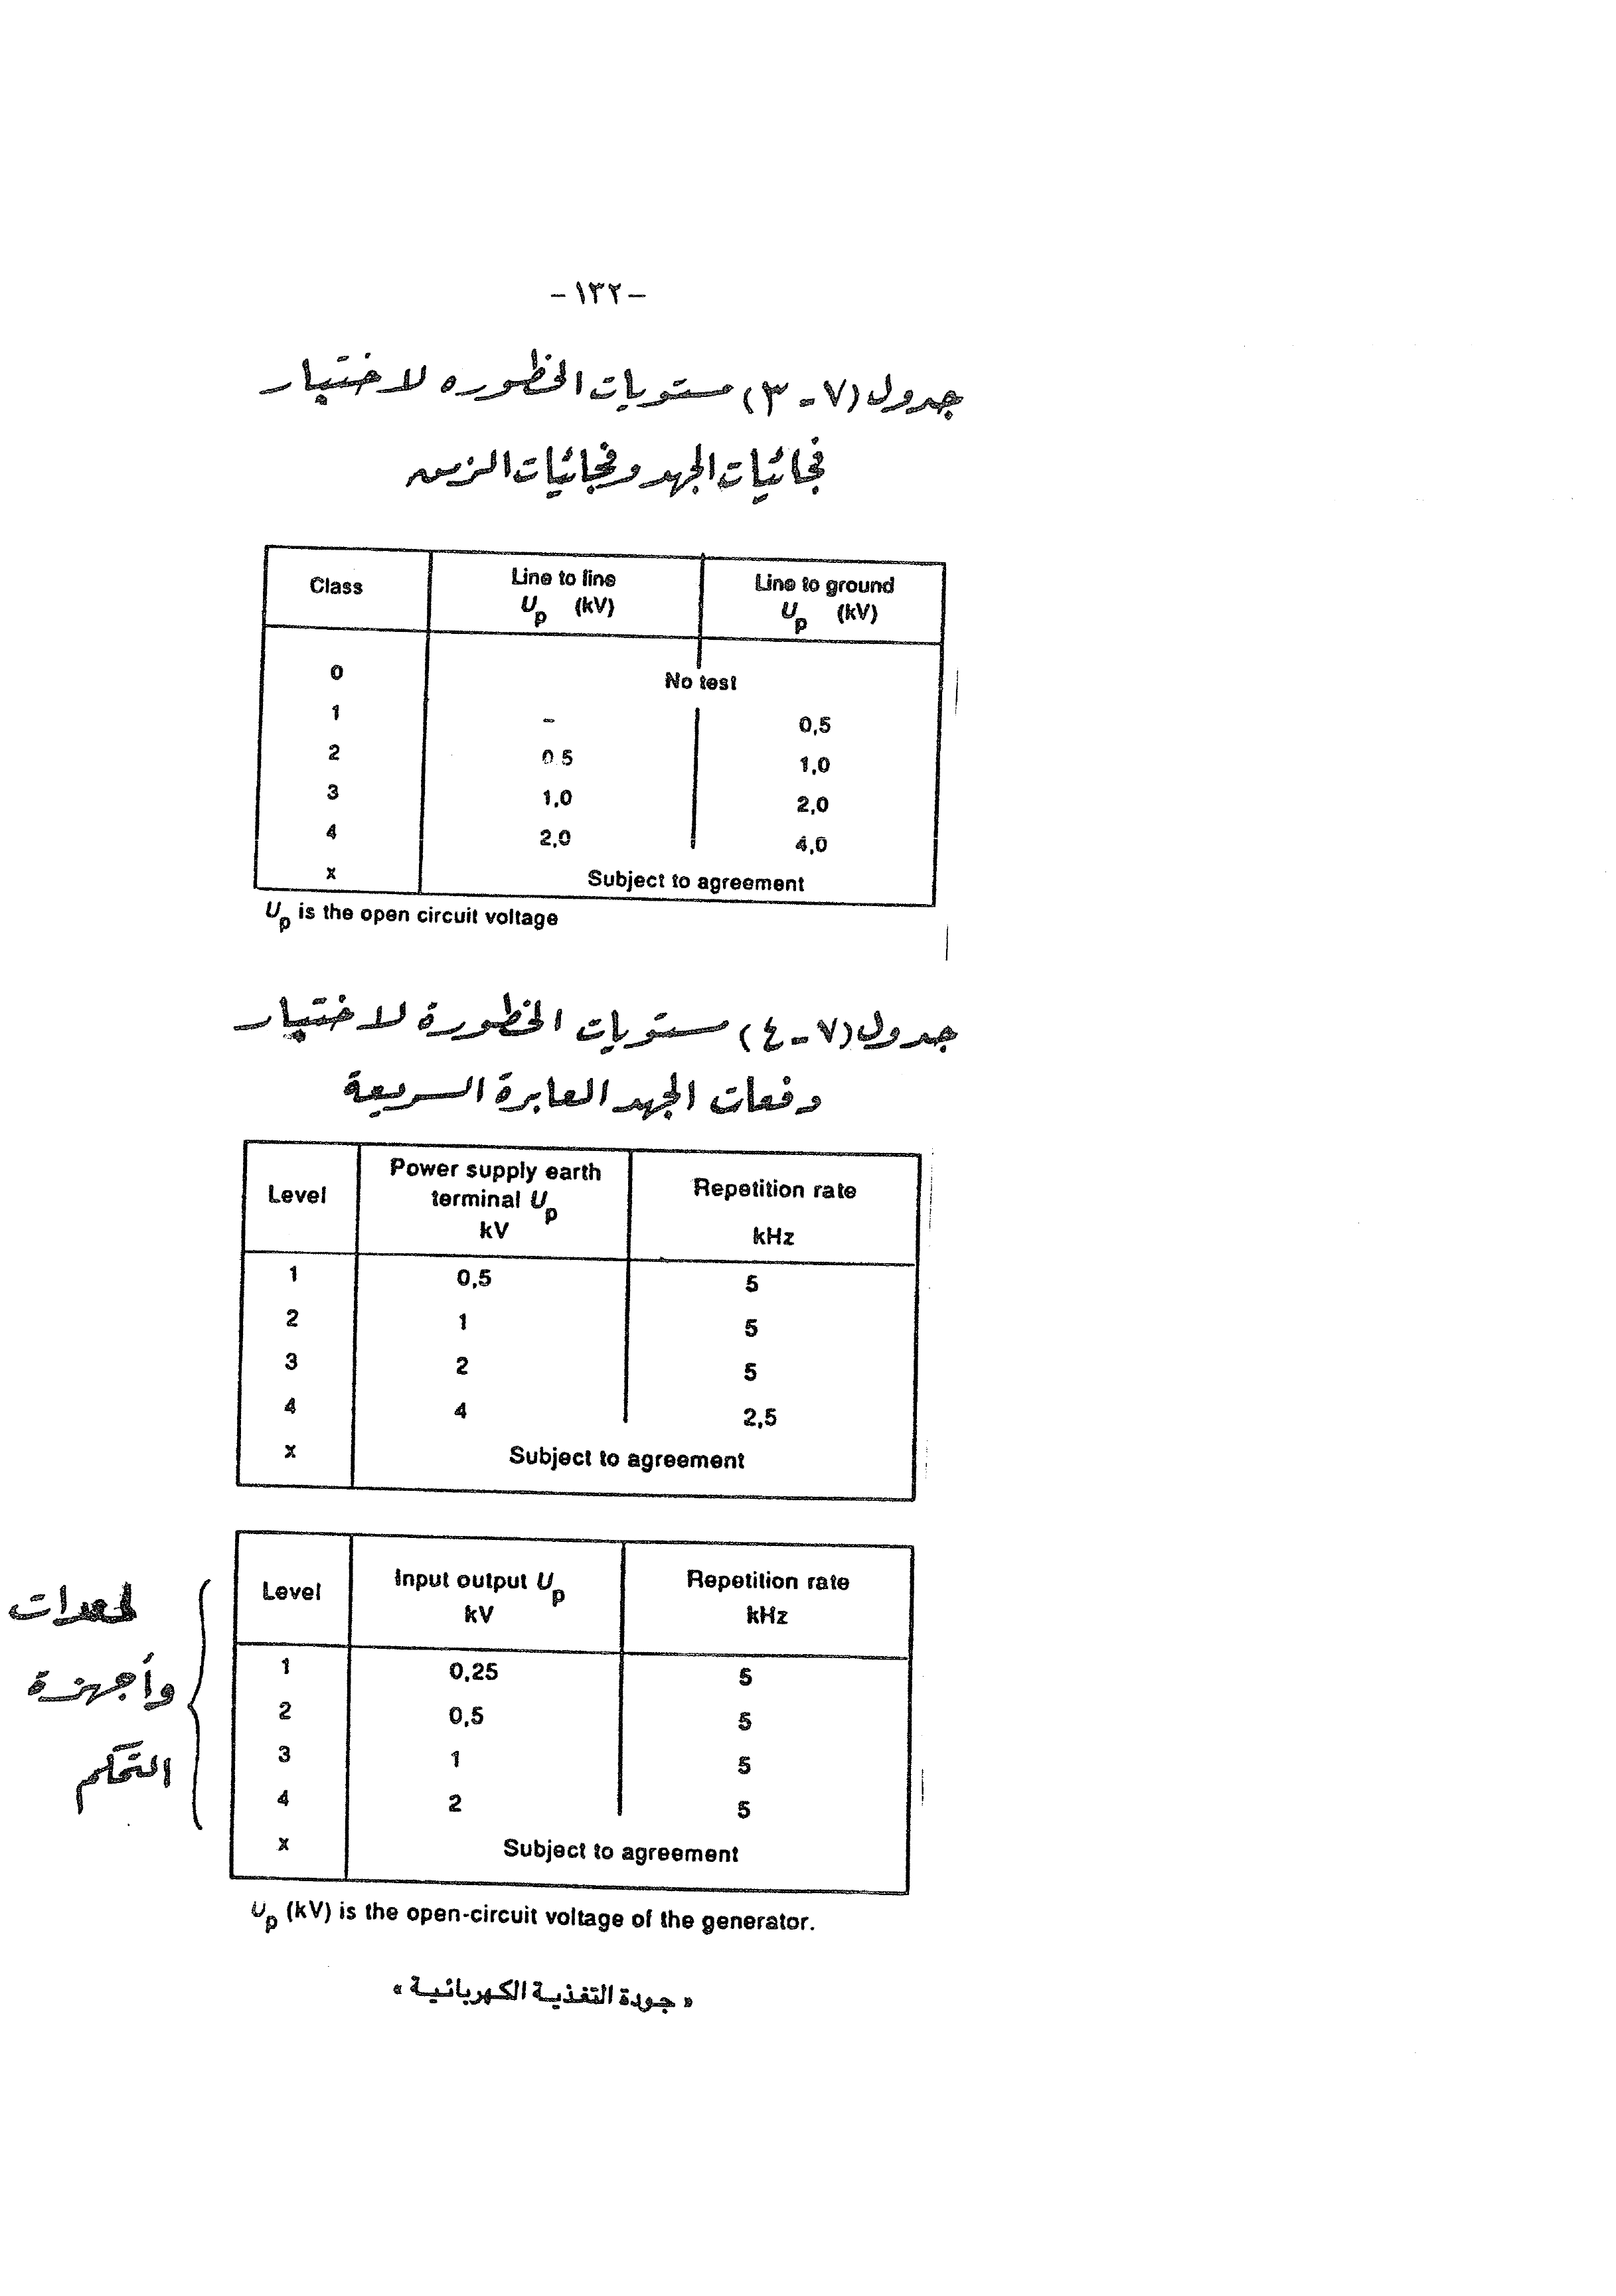 -١٣٢-
جدول (٧-٣) مستويات الخطوره لاختبار
فجائيات الجهد وفجائيات الزمن
Class Line to line Up (kV) Line to ground Up (kV)
0 No test
1 – 0,5
2 0 5 1,0
3 1,0 2,0
4 2,0 4,0
x Subject to agreement
Up is the open circuit voltage
جدول (٧-٤) مستويات الخطورة لاختبار
دفعات الجهد العابرة السريعة
Level Power supply earth terminal Up kV Repetition rate kHz
1 0,5 5
2 1 5
3 2 5
4 4 2,5
x Subject to agreement
Level Input output Up kV Repetition rate kHz
1 0,25 5
2 0,5 5
3 1 5
4 2 5
x Subject to agreement
وأجهزة
التحكم
Up (kV) is the open-circuit voltage of the generator.
« جودة التغذية الكهربائية »